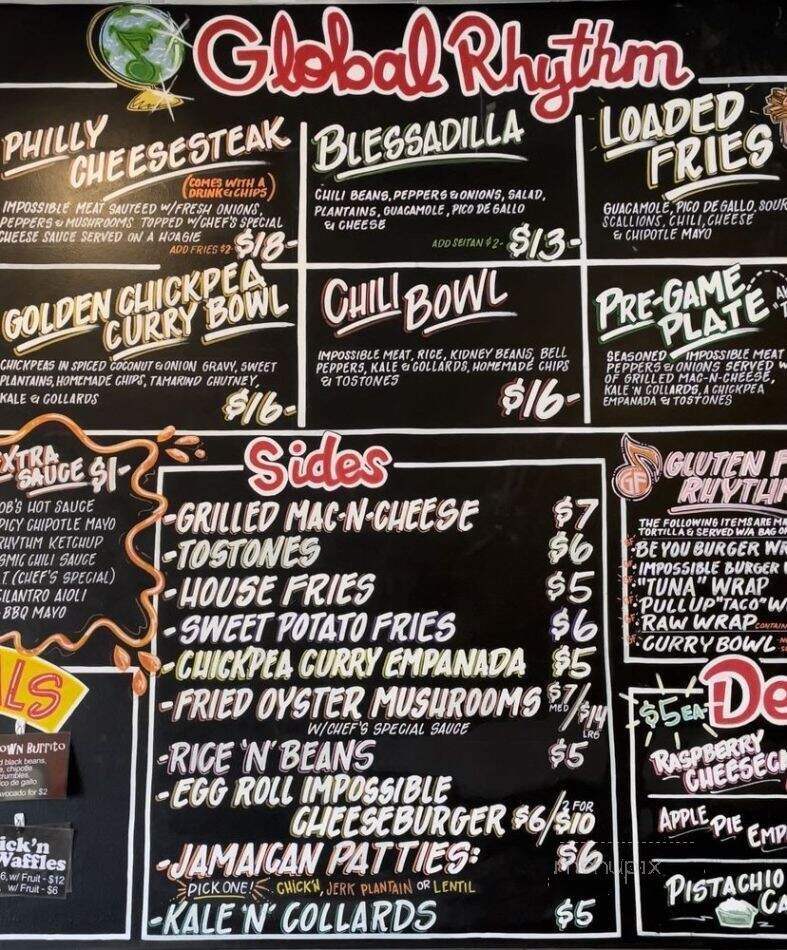 Global Rhythm
PHILLY
CHEESESTEAK
(COMES WITH A
DRINK & CHIPS)
IMPOSSIBLE MEAT SAUTEED W/FRESH ONIONS,
PEPPERS & MUSHROOMS TOPPED W/CHEF'S SPECIAL
CHEESE SAUCE SERVED ON A HOAGIE
ADD FRIES $2- $18-
BLESSADILLA
CHILI BEANS, PEPPERS & ONIONS, SALAD,
PLANTAINS, GUACAMOLE, PICO DE GALLO
& CHEESE
ADD SEITAN $2- $13-
LOADED
FRIES
GUACAMOLE, PICO DE GALLO, SOUR
SCALLIONS, CHILI, CHEESE
& CHIPOTLE MAYO
GOLDEN CHICKPEA
CURRY BOWL
CHICKPEAS IN SPICED COCONUT & ONION GRAVY, SWEET
PLANTAINS, HOMEMADE CHIPS, TAMARIND CHUTNEY,
KALE & COLLARDS
$16-
CHILI BOWL
IMPOSSIBLE MEAT, RICE, KIDNEY BEANS, BELL
PEPPERS, KALE & COLLARDS, HOMEMADE CHIPS
& TOSTONES
$16-
PRE-GAME
PLATE
SEASONED IMPOSSIBLE MEAT
PEPPERS & ONIONS SERVED W
OF GRILLED MAC-N-CHEESE,
KALE 'N COLLARDS, A CHICKPEA
EMPANADA & TOSTONES
XTRA
SAUCE $1-
OB'S HOT SAUCE
PICY CHIPOTLE MAYO
RHYTHM KETCHUP
SMIC CHILI SAUCE
.T (CHEF'S SPECIAL)
CILANTRO AIOLI
BBQ MAYO
Sides
-GRILLED MAC-N-CHEESE $7
-TOSTONES $6
-HOUSE FRIES $5
-SWEET POTATO FRIES $6
-CHICKPEA CURRY EMPANADA $5
-FRIED OYSTER MUSHROOMS $7 MED/$14 LRG
W/CHEF'S SPECIAL SAUCE
-RICE 'N' BEANS $5
-EGG ROLL IMPOSSIBLE
CHEESEBURGER $6/2 FOR $10
-JAMAICAN PATTIES: $6
PICK ONE! CHICK'N, JERK PLANTAIN OR LENTIL
-KALE 'N' COLLARDS $5
GF
GLUTEN F
RHYTH
THE FOLLOWING ITEMS ARE MA
TORTILLA & SERVED W/A BAG O
BE YOU BURGER WR
IMPOSSIBLE BURGER
"TUNA" WRAP
"PULL UP "TACO" W
RAW WRAP CONTAIN
CURRY BOWL
ALS
OWN BURRITO
d black beans,
e, chipotle
crumbles,
co de gallo
Avocado for $2
ick'n
Waffles
6, w/ Fruit - $12
w/ Fruit - $6
$5 EA- De
RASPBERRY
CHEESECA
APPLE PIE EMP
PISTACHIO
CA
menupix